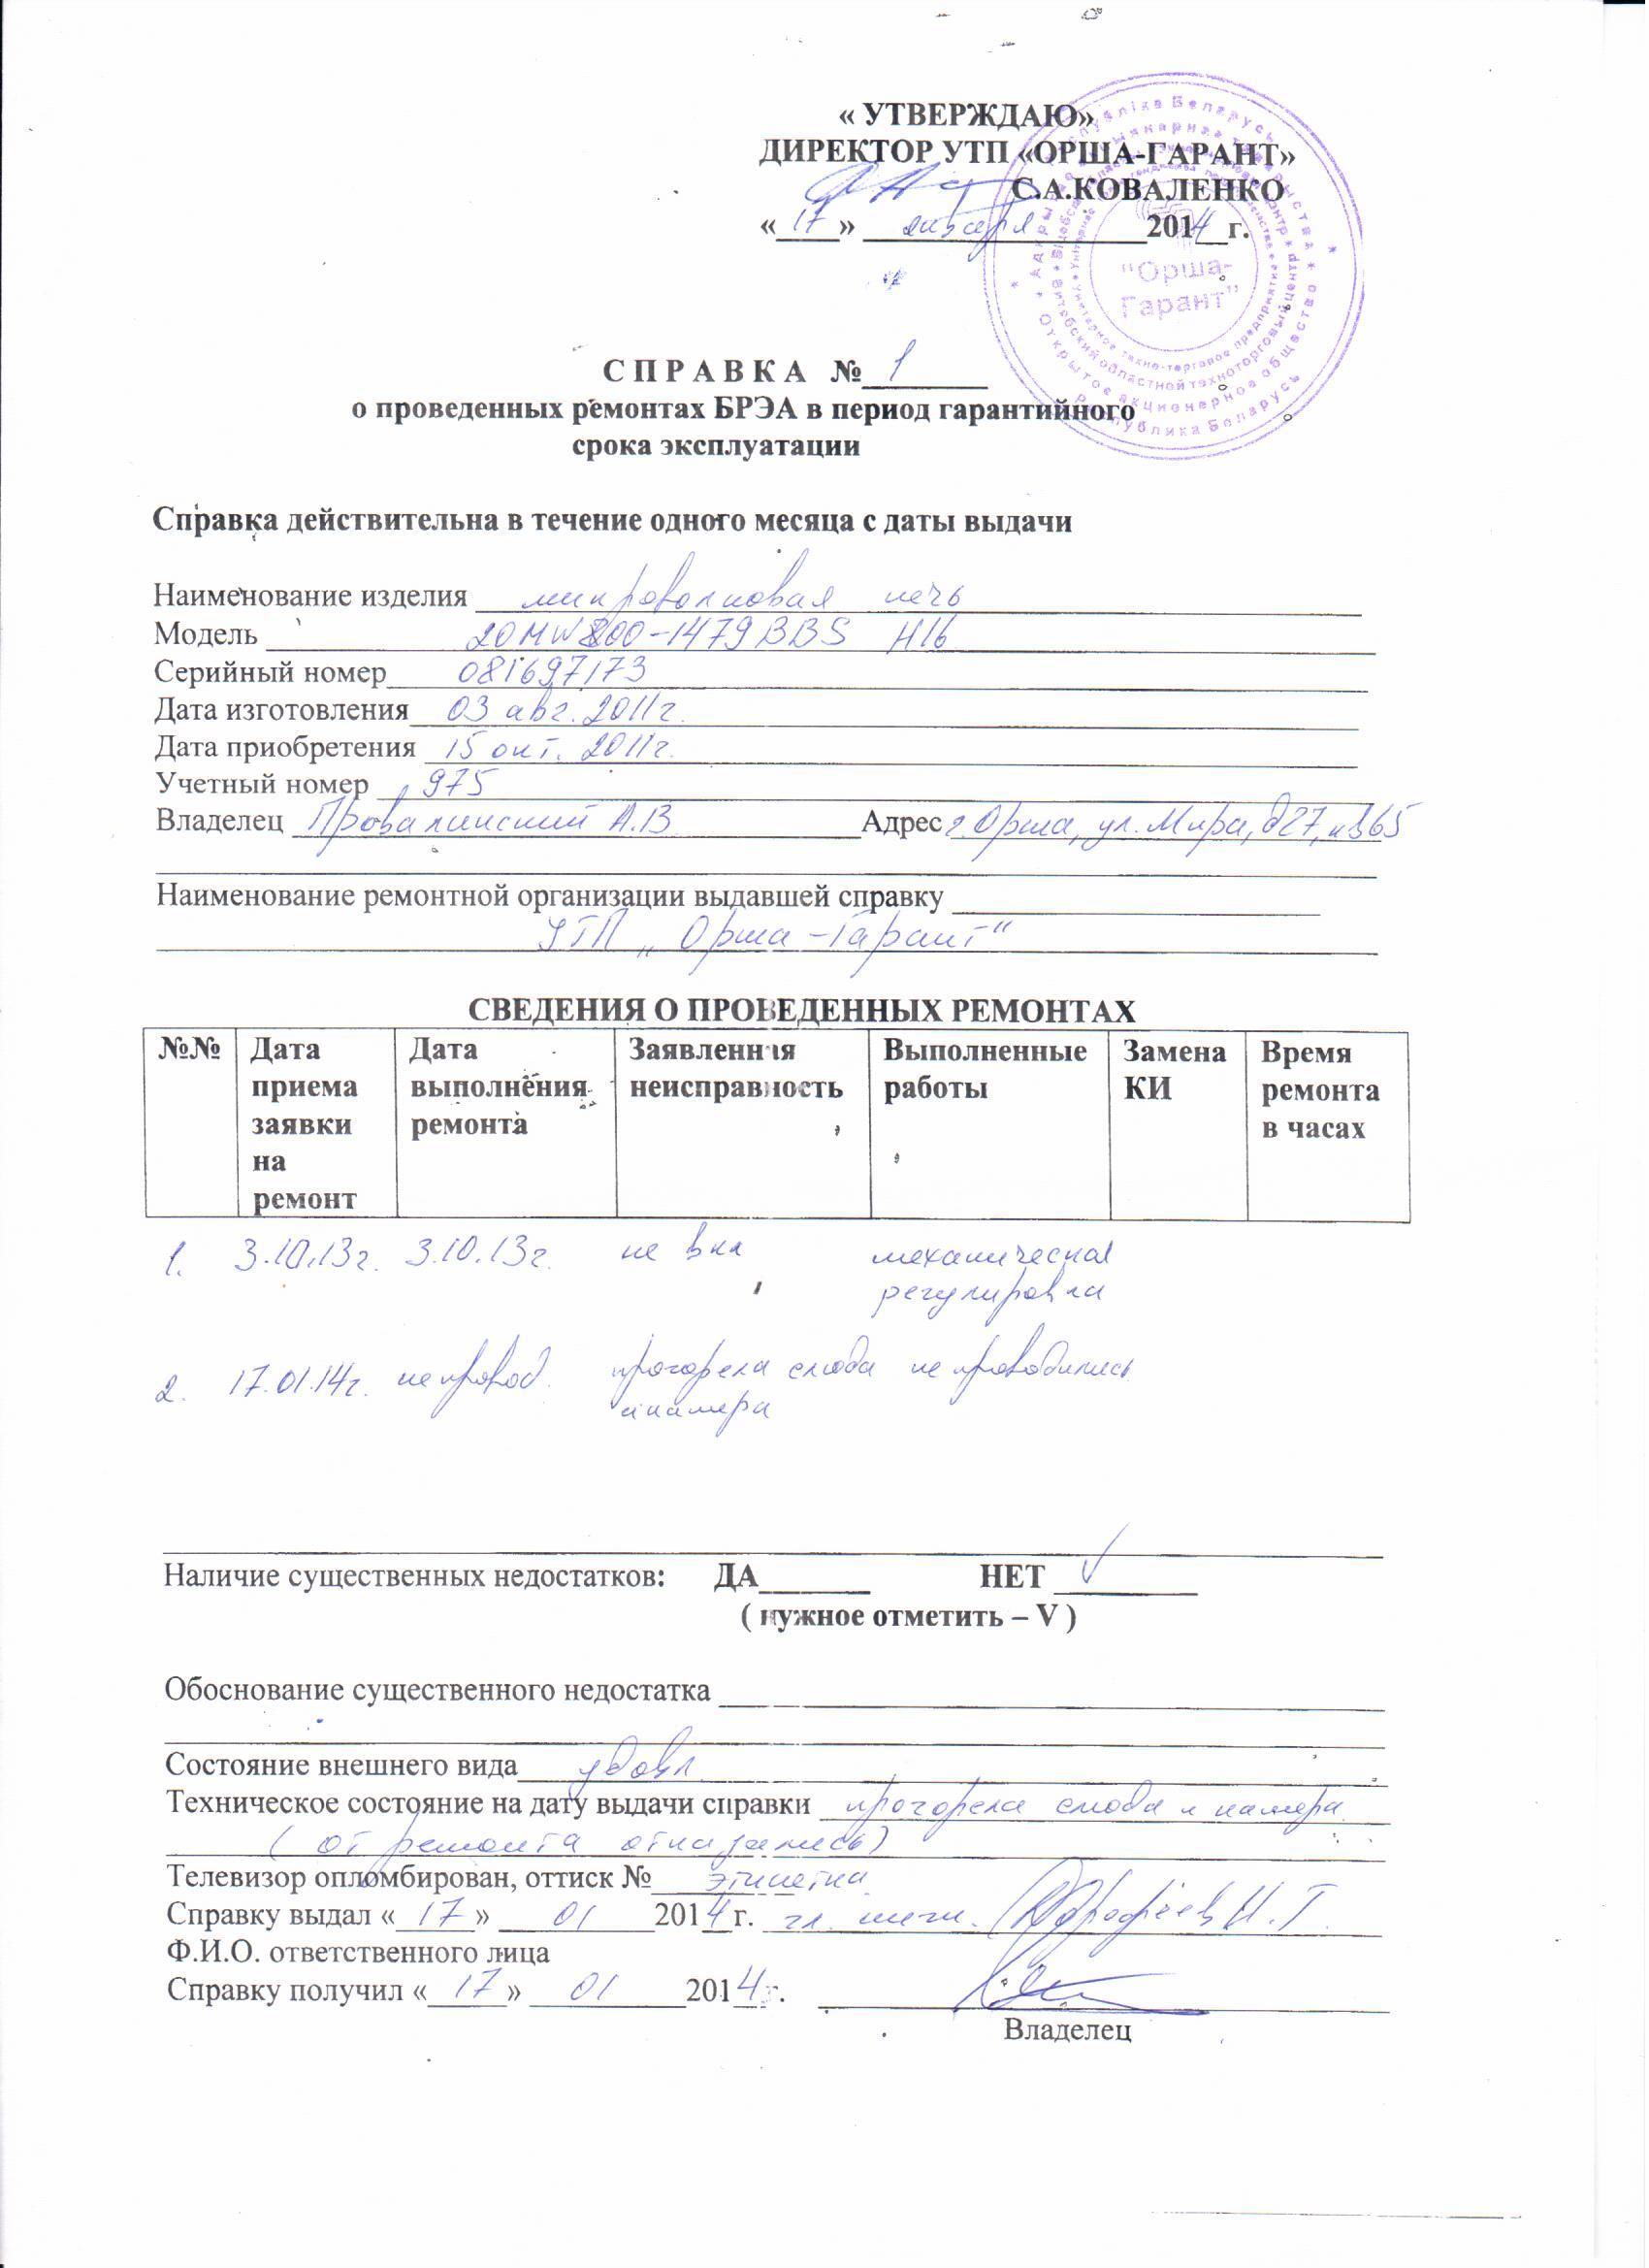 « УТВЕРЖДАЮ»
ДИРЕКТОР УТП «ОРША-ГАРАНТ»
С.А.КОВАЛЕНКО
«17» января 2014г.
"Орша-
Гарант"
Рэспубліка Беларусь
Открытое акционерное общество
Витебский областной техноторговый центр
Республика Беларусь
С П Р А В К А №1
о проведенных ремонтах БРЭА в период гарантийного
срока эксплуатации
Справка действительна в течение одного месяца с даты выдачи
Наименование изделия микроволновая печь
Модель 20MW800-1479BBS H16
Серийный номер 081697173
Дата изготовления 03 авг. 2011г.
Дата приобретения 15 окт. 2011г.
Учетный номер 975
Владелец Провалинский А.В Адрес г.Орша, ул.Мира, д27, кв65
Наименование ремонтной организации выдавшей справку
УТП „Орша-Гарант“
СВЕДЕНИЯ О ПРОВЕДЕННЫХ РЕМОНТАХ
№№ Дата приема заявки на ремонт Дата выполнения ремонта Заявленная неисправность Выполненные работы Замена КИ Время ремонта в часах
1. 3.10.13г. 3.10.13г. не вкл механическая
регулировка
2. 17.01.14г. не провод. прогорела слюда не проводились
и камера
Наличие существенных недостатков: ДА НЕТ V
( нужное отметить – V )
Обоснование существенного недостатка
Состояние внешнего вида удовл.
Техническое состояние на дату выдачи справки прогорела слюда и камера
( от ремонта отказались)
Телевизор опломбирован, оттиск № этикетка
Справку выдал «17» 01 2014г. гл. инж.
Ф.И.О. ответственного лица
Справку получил «17» 01 2014г.
Владелец